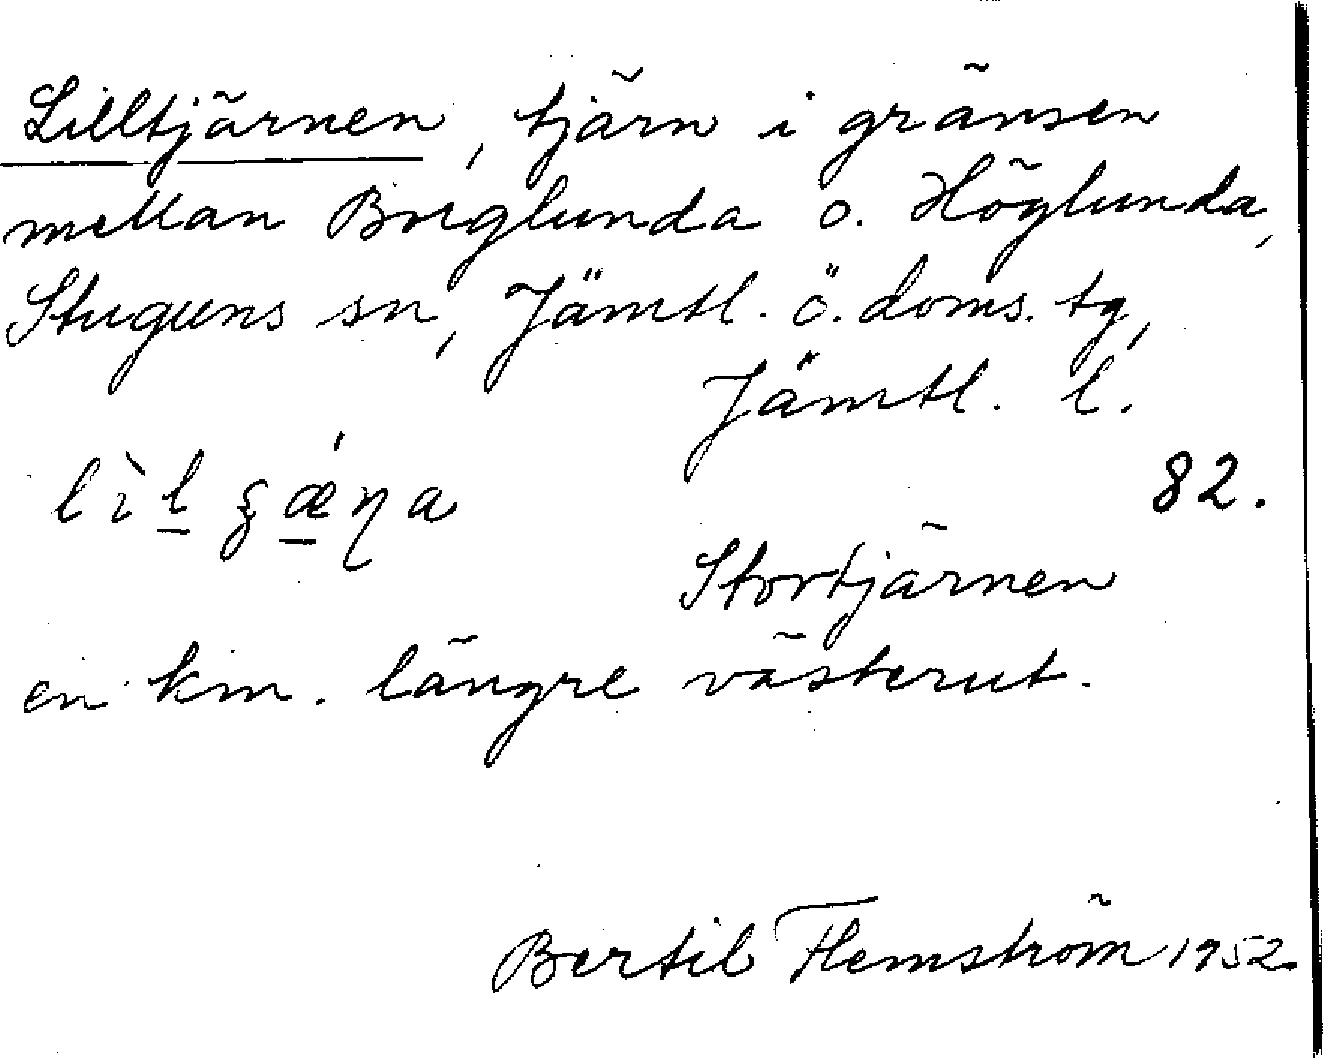 Lilltjärnen, tjärn i gränsen
mellan Borglunda o. Höglunda,
Stuguns sn, Jämtl. ö. doms. tg,
Jämtl. l.
82.
Stortjärnen
en km. längre västerut.
Bertil Flemström 1952.